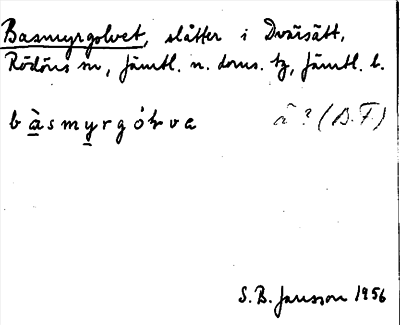 Basmyrgolvet, slåtter i Dvärsätt,
Rödöns sn, Jämtl. n. doms. tg, Jämtl. l.
bàsmyrgó va â? (B.F.)
S. B. Jansson 1956